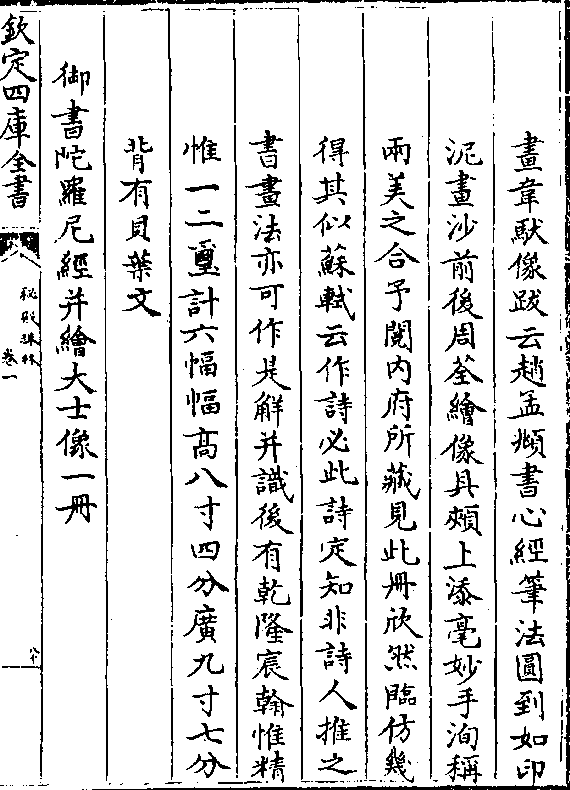 畫韋馱像跋云趙孟頫書心經筆法圓到如印
泥畫沙前後周荃繪像具頰上添毫妙手洵稱
兩美之合予閱内府所藏見此冊欣然臨仿幾
得其似蘇軾云作詩必此詩定知非詩人推之
書畫法亦可作是解并識後有乾隆宸翰惟精
惟一二璽計六幅幅高八寸四分廣九寸七分
背有貝葉文
御書陀羅尼經并繪大士像一冊
欽定四庫全書
秘殿珠林
卷一
八十